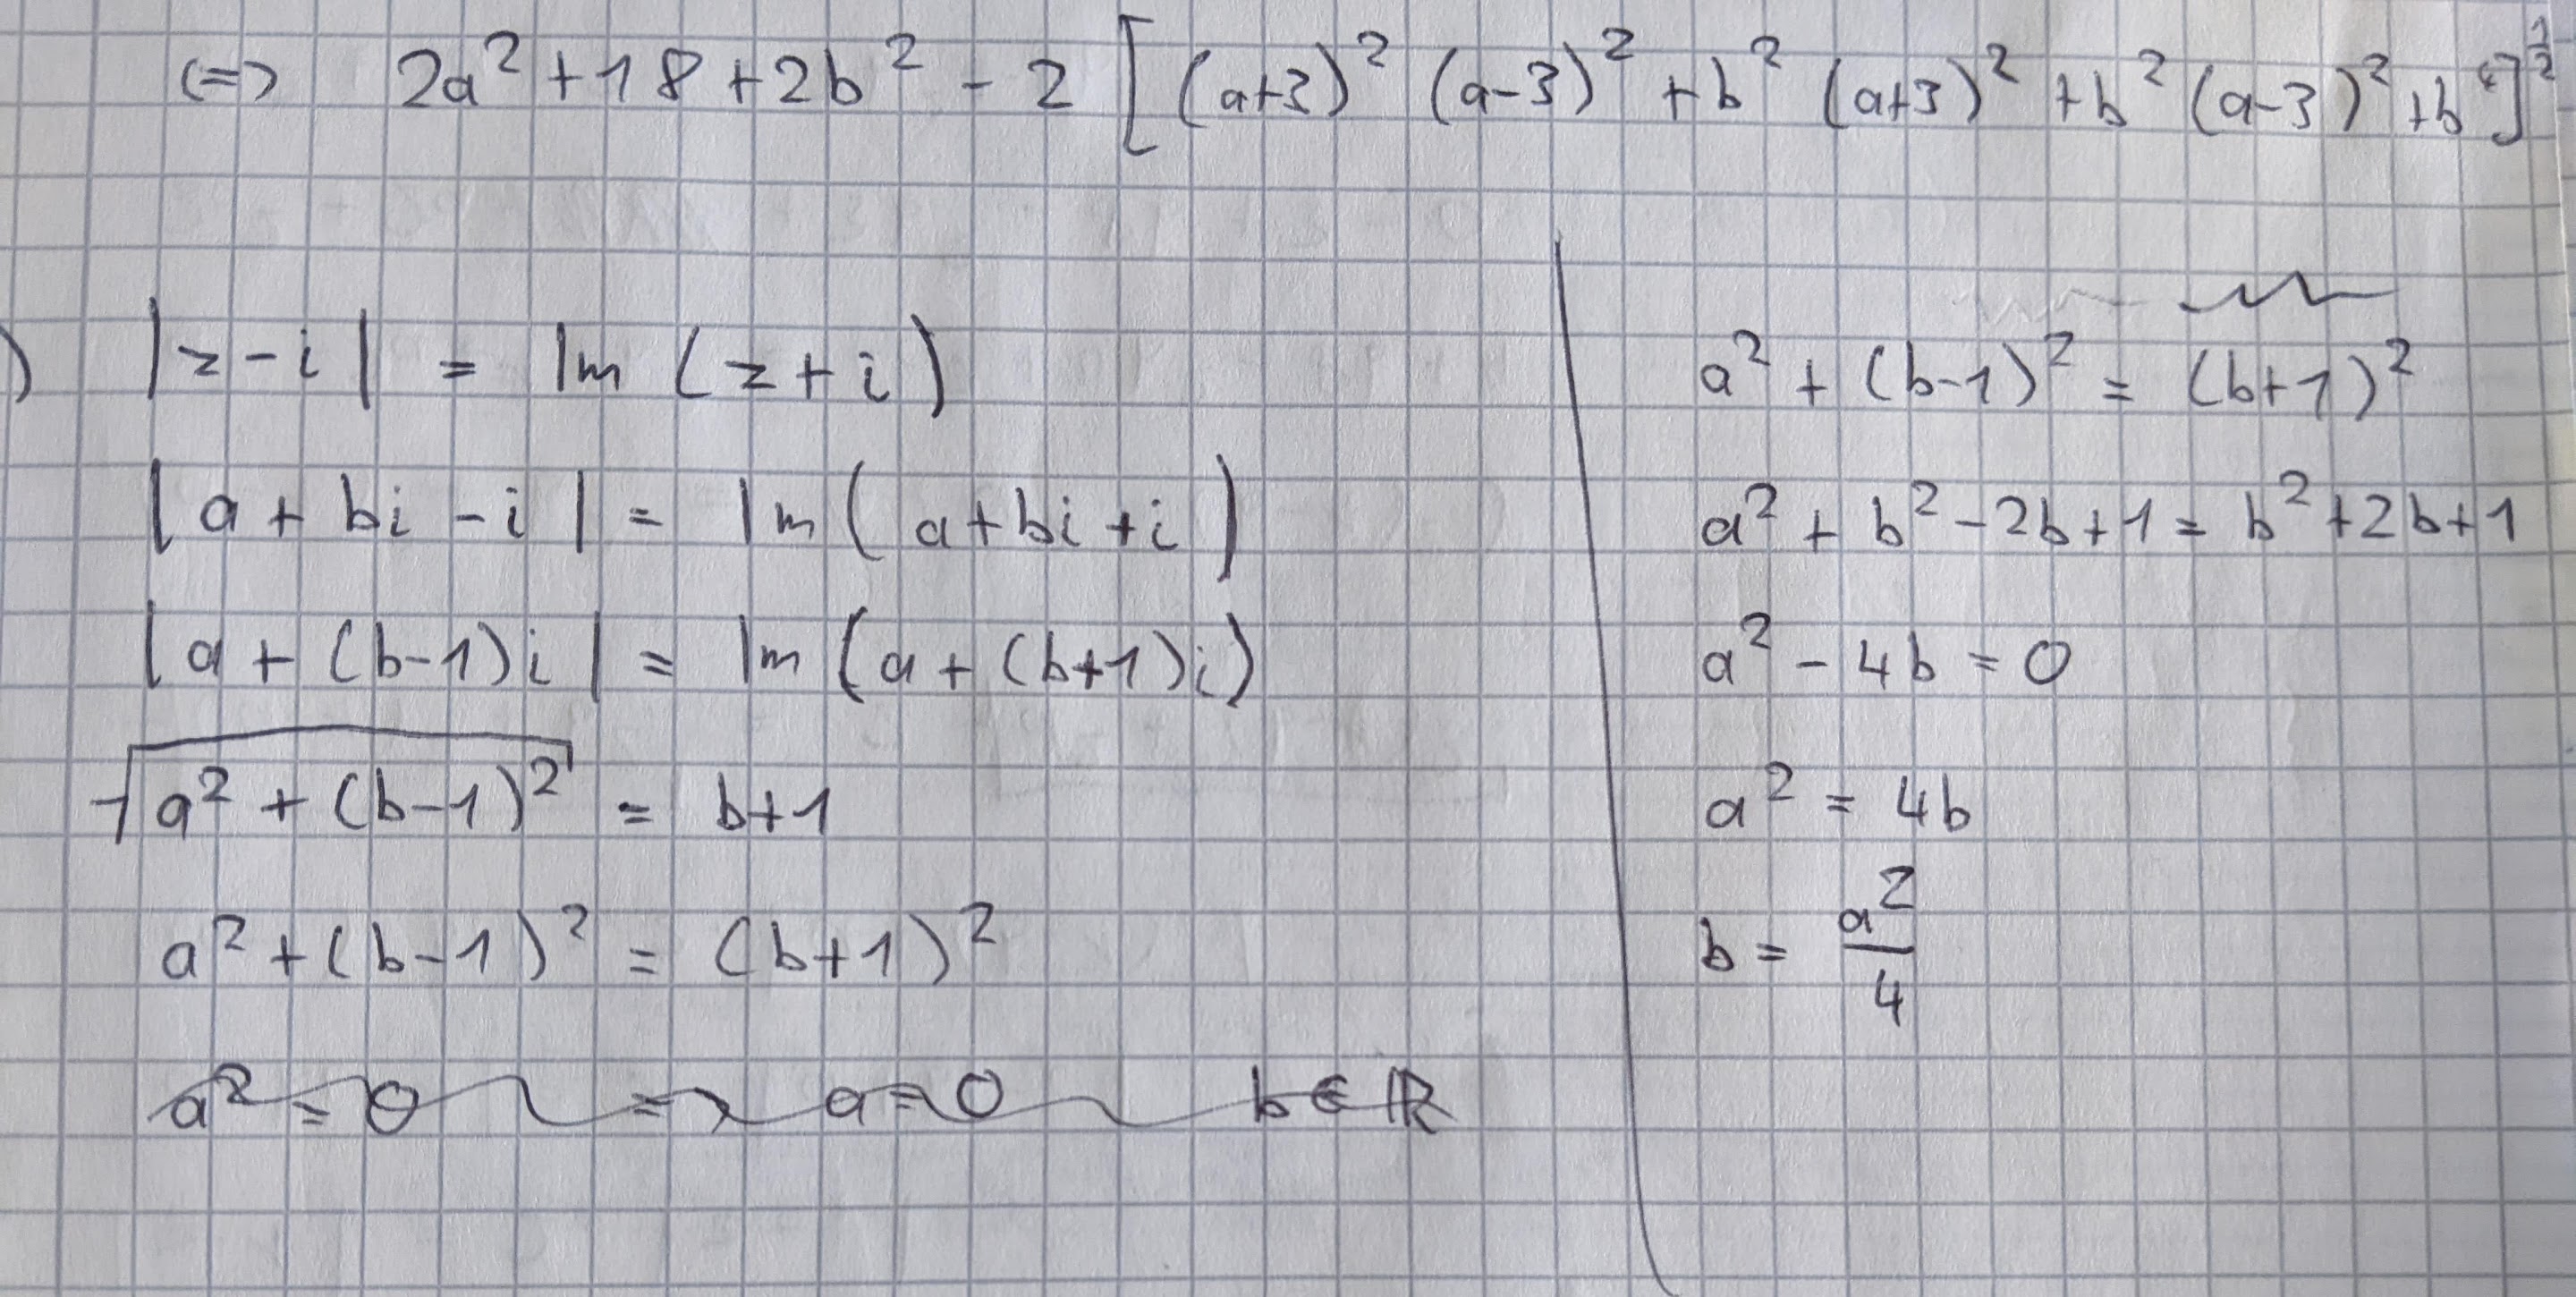 (=) 2a² + 18 + 2b² - 2 [(a+3)² (a-3)² + b² (a+3)² + b² (a-3)² + b⁴]^½
) |z - i| = Im (z + i)
|a + bi - i| = Im (a + bi + i)
|a + (b-1)i| = Im (a + (b+1)i)
√(a² + (b-1)²) = b+1
a² + (b-1)² = (b+1)²
a² = 0 => a = 0 b ∈ ℝ
a² + (b-1)² = (b+1)²
a² + b² - 2b + 1 = b² + 2b + 1
a² - 4b = 0
a² = 4b
b = a²/4